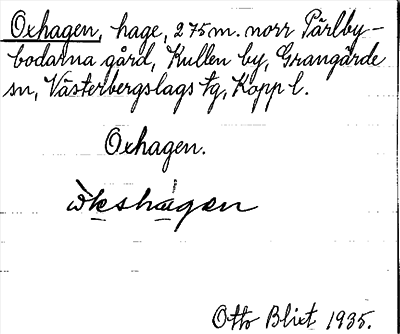 Oxhagen, hage, 275 m. norr Pärlby-
bodarna gård, Kullen by, Grangärde
sn, Västerbergslags fg, Kopp l.
Oxhagen.
Otto Blixt 1935.